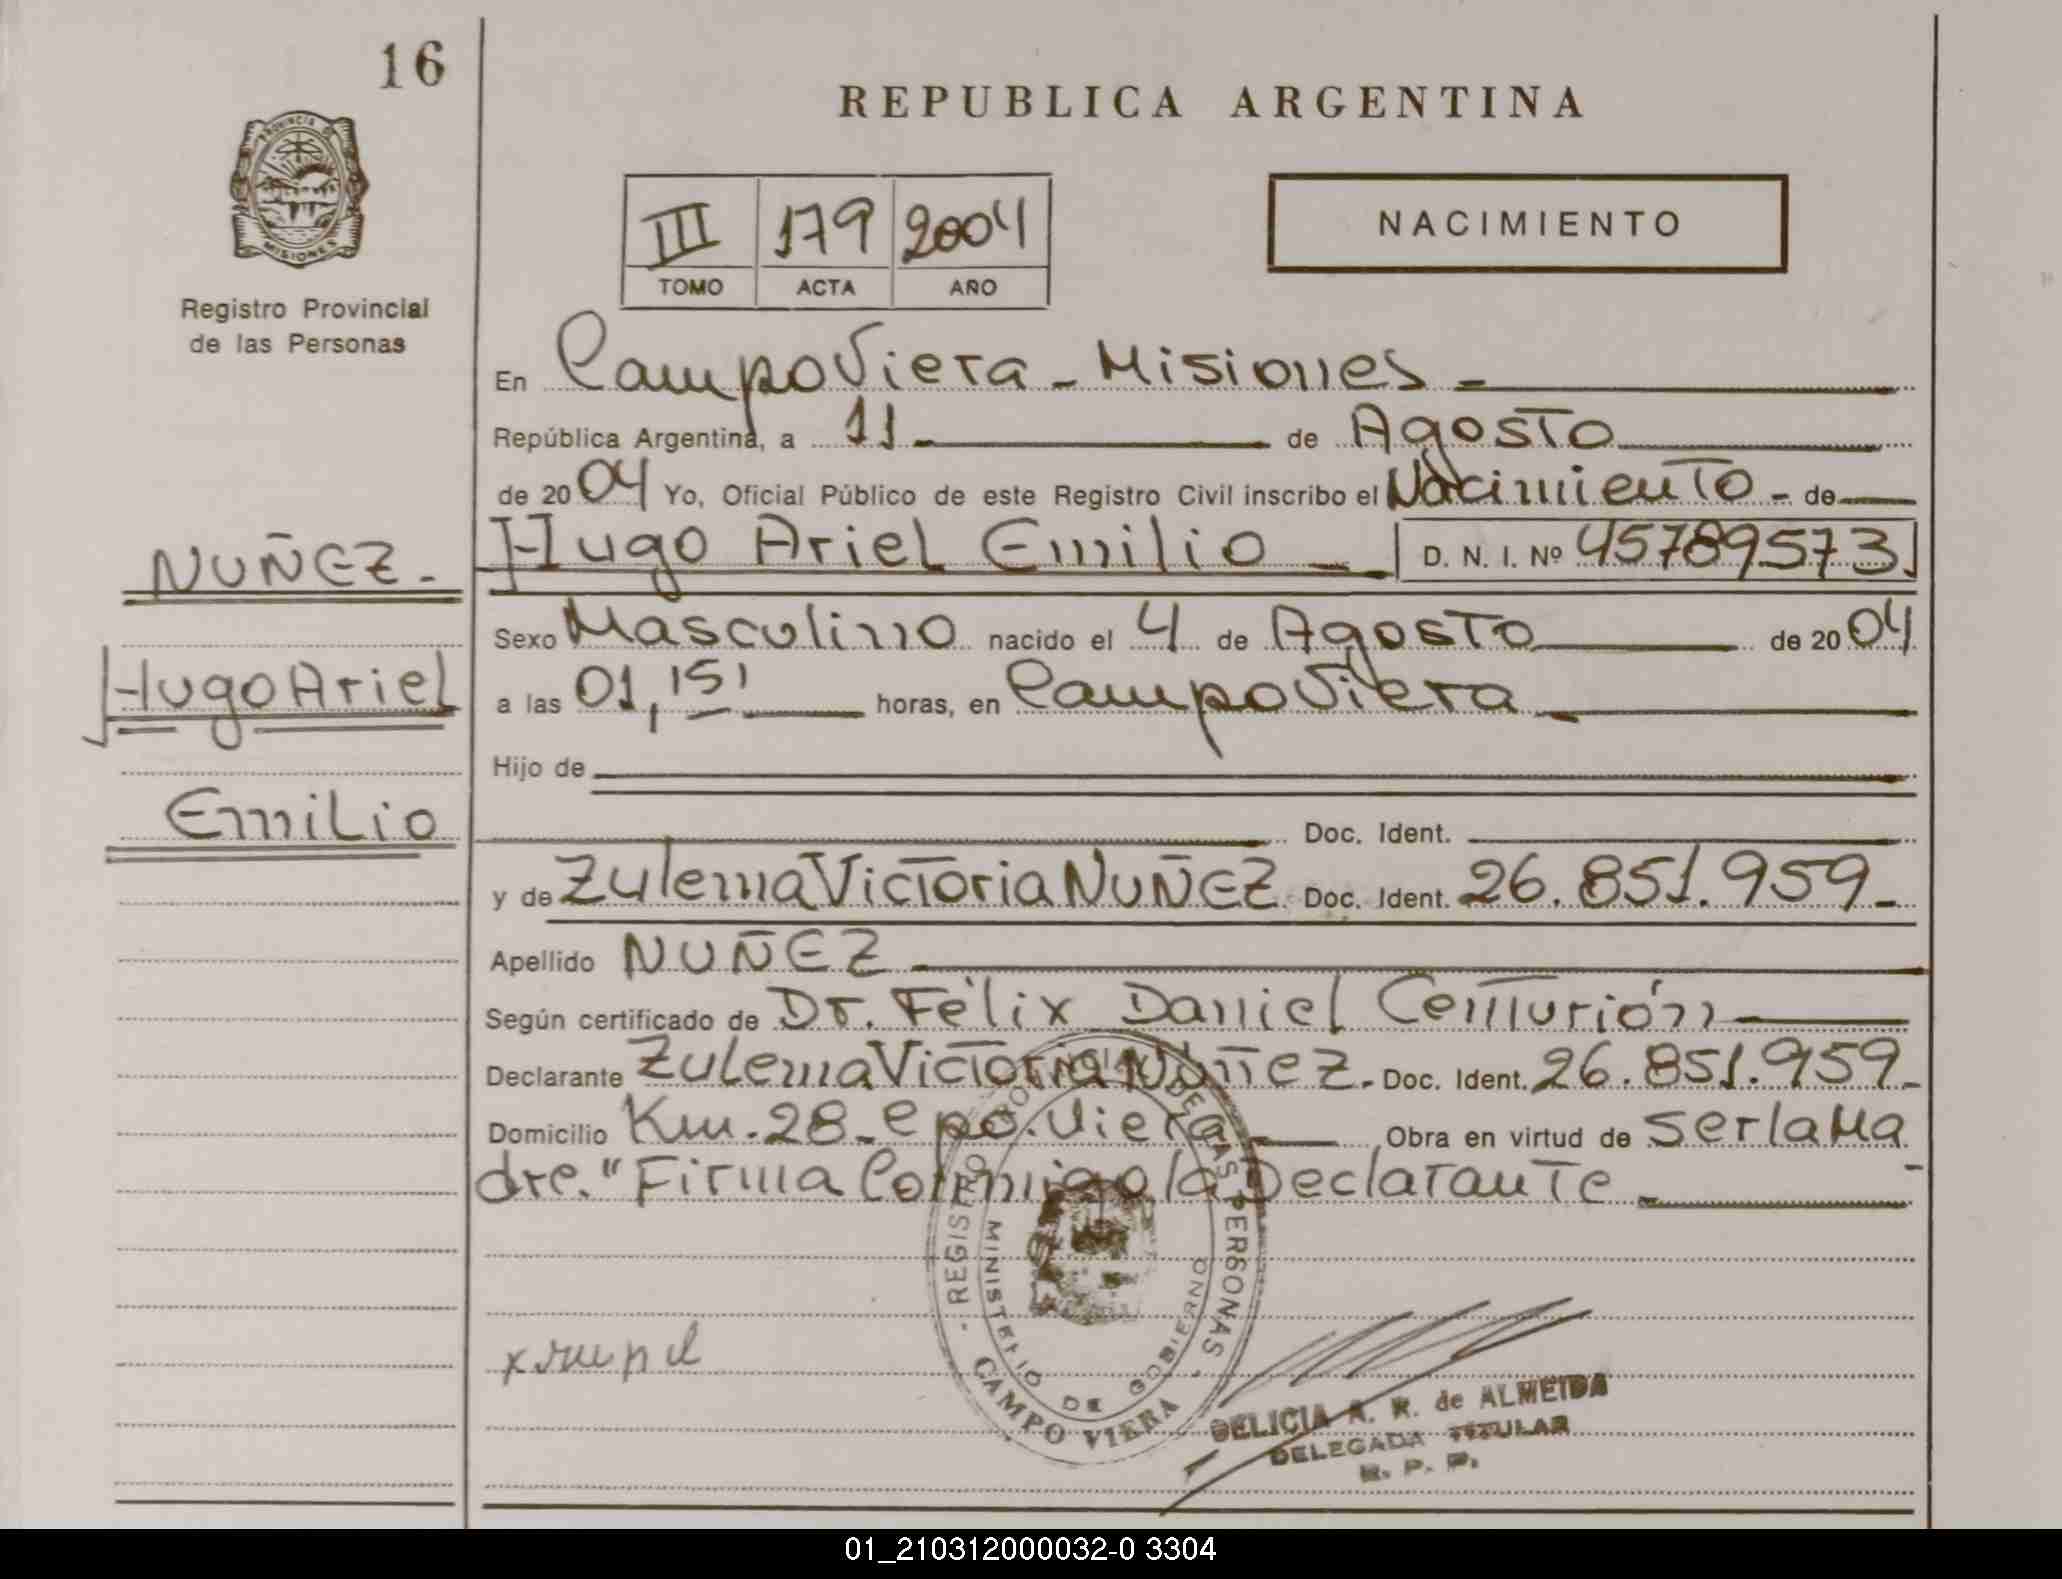 16
REPUBLICA ARGENTINA
PROVINCIA DE
MISIONES
III 179 2004
TOMO ACTA AÑO
NACIMIENTO
Registro Provincial
de las Personas
En Campo Viera - Misiones -
República Argentina, a 11 de Agosto
de 2004 Yo, Oficial Público de este Registro Civil inscribo el Nacimiento - de
NUÑEZ.
Hugo Ariel Emilio D. N. I. Nº 45789573
Sexo Masculino nacido el 4 de Agosto de 2004
Hugo Ariel
a las 01,15' horas, en Campo Viera
Hijo de
Emilio
Doc. Ident.
y de Zulema Victoria NUÑEZ Doc. Ident. 26.851.959-
Apellido NUÑEZ
Según certificado de Dr. Félix Daniel Centurión
Declarante Zulema Victoria Núñez. Doc. Ident. 26.851.959-
Domicilio Km. 28- Cpo. Viera Obra en virtud de ser la Ma
dre." Firma Conmigo la Declarante -
REGISTRO PROVINCIAL DE LAS PERSONAS
MINISTERIO DE GOBIERNO
CAMPO VIERA
DELICIA R. R. de ALMEIDA
DELEGADA TITULAR
R. P. P.
01_210312000032-0 3304